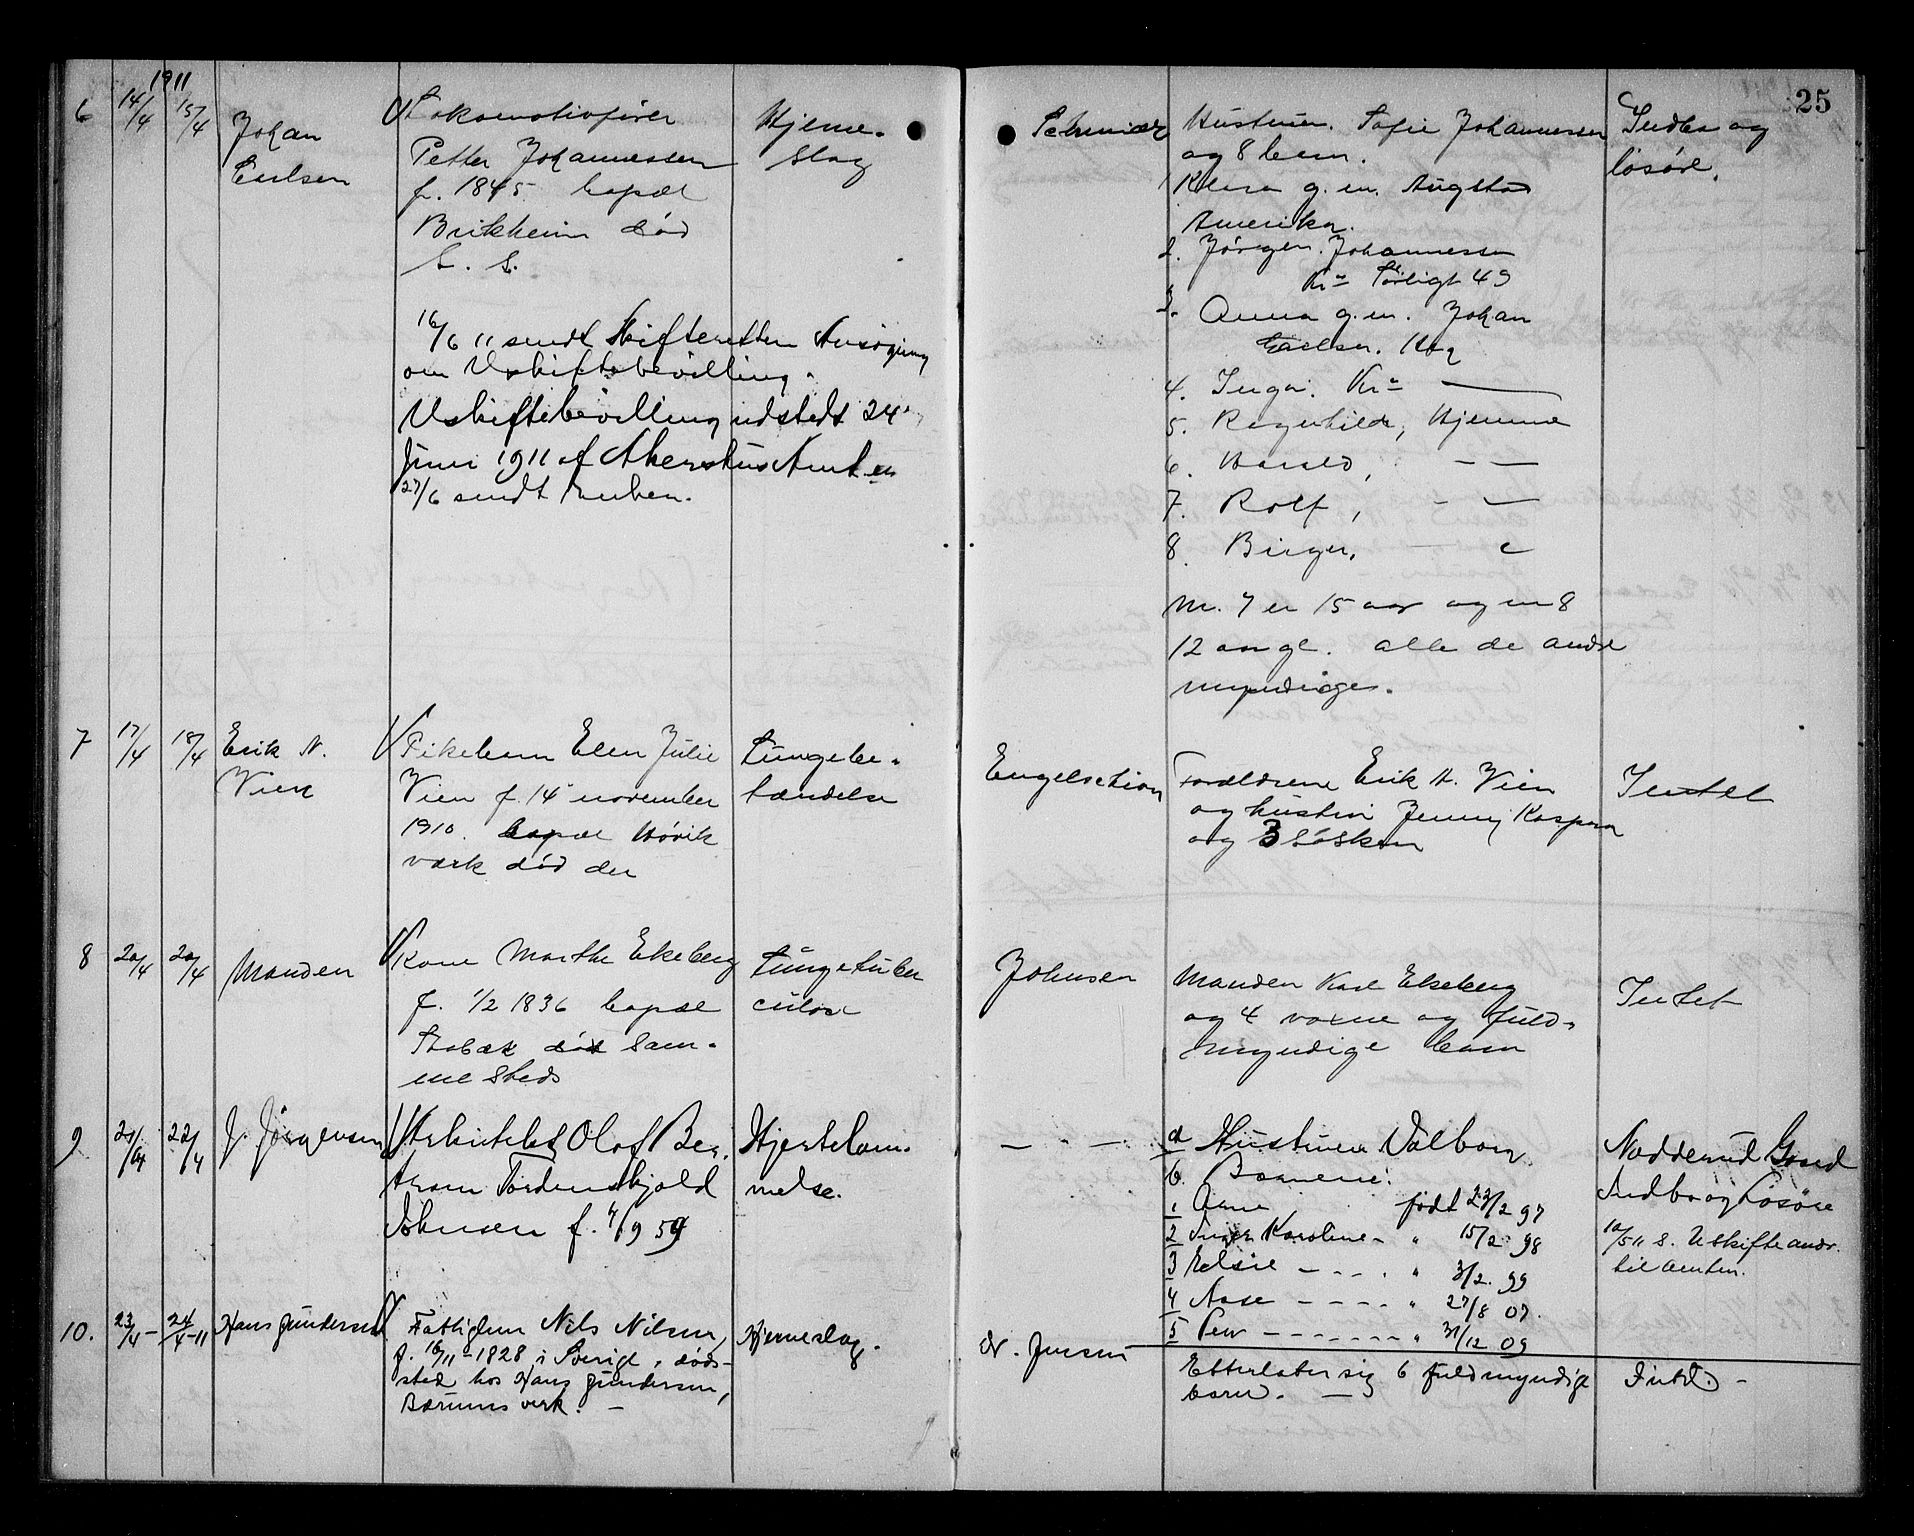 1911
25
6 14/4 15/4 Johan
Carlsen
Lokomotivfører
Petter Johannessen
f. 1845 bopæl
Brikheim død
s. s.
16/6 11 sendt Skifteretten Ansøgning
om Uskiftebevilling.
Uskiftebevilling udstedt 24
Juni 1911 af Akershus Amt
27/6 sendt enken.
Hjerne-
slag
Hustruen. Sofie Johannessen
og 8 barn.
1 Klara g. m. Augstad
Amerika.
2. Jørgen Johannessen
Kr.
3. Anna g. m. Johan
Carlsen.
4. Inga. Kr.
5. Ragnhild, Hjemme
6. Harald, — —
7. Rolf, — —
8. Birger, —
Nr. 7 er 15 aar og nr 8
12 aar gl. alle de andre
myndige.
Indbo og
løsøre.
7 17/4 18/4 Erik N.
Vien
Pikebarn Elen Julie
Vien f. 14 november
1910. bopæl Høvik
værk død der
Lungebe-
tændelse
Engelsction
Forældrene Erik N. Vien
og hustru Jenny Kaspara
og 3 søsken
Intet
8 20/4 20/4 Manden
Kone Marthe Ekeberg
f. 1/2 1836 bopæl
Stabæk død sam-
me steds
Lungetuber
culose
Johnsen
Manden Karl Ekeberg
og 4 voxne og fuld-
myndige barn
Intet
9 21/4 22/4 J. Jørgensen
Arkitekt Olaf Be.
Tordenskjold
Johnsen f. 4/9 59
Hjertelam-
melse.
— — —
a Hustruen Valborg
b. Børnene:
1 Arne født 23/2 97
2 Inger Karoline - " 15/2 98
3 Elsie - - - - " 3/2. 99
4 Aase - - - - " 27/8 07.
5 Peer - - - - - - - " 31/12 09
Nadderud Gaard
Indbo og Løsøre
10/5 11 s. Uskifteandr.
til amten.
10. 23/4 - 24/4-11 Hans Gundersen
Fattiglem Nils Nilsen,
f. 16/11-1828 i Sverige, døds-
sted hos Hans Gundersen,
Bærums verk. -
Hjerneslag.
N. Jensen
Etterlater sig 6 fuldmyndige
barn. —
Intet. -